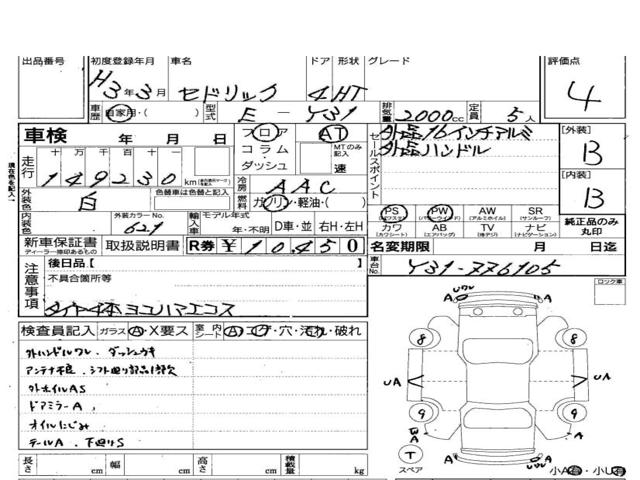 出品番号 初度登録年月 車名 ドア 形状 グレード 評価点
H3年3月 セドリック 4HT 4
車歴 自家用・( ) 型式 E-Y31 排気量 2000cc 定員 5人
車検 年 月 日 フロア AT セールスポイント 外品16インチアルミ [外装]
コラム MTのみ記入 外品ハンドル B
走行 十万千百十一 ダッシュ 速
149230 km [内装]
外装色 白 色替車は色替と記入 冷房 AAC B
燃料 ガソリン・軽油・( ) PS PW AW SR
(パワステ) (パワーウィンド) (アルミホイル) (サンルーフ) 純正品のみ丸印
内装色 外装カラーNo. 621 輸入車 モデル年式 年・不明 D車・並 右H・左H カワ AB TV ナビ
(カワシート) (エアバッグ) (地デジ) (ナビゲーション)
新車保証書 取扱説明書 R券 ¥10,450 名変期限 月 日迄
ディーラー捺印あるもの
現在色を記入↑
注意事項 後日品[ 車台No. Y31-776105
不具合箇所等 ロック車
タイヤ4本ヨコハマエコス
検査員記入 ガラス A・X要ス 室内シート A・コゲ・穴・汚れ・破れ
外ハンドルワレ、ダッシュウキ
アンテナ不良、シフト回り部品1部欠
外ホイルAS
ドアミラーA
オイルにじみ
テールA、下廻りS
A A
8 8
UA UA
9 9
A A
T
スペア A A 小A有・小U有
長さ cm 幅 cm 高さ cm 積載量 kg